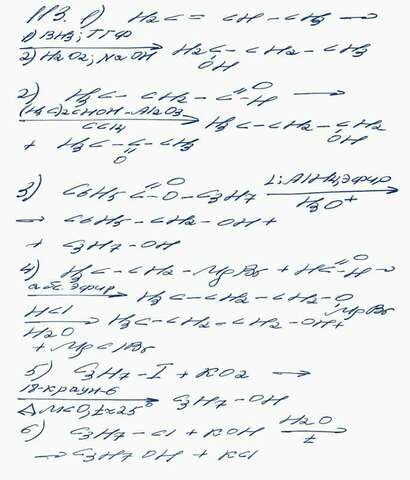 113. 1) H2C = CH - CH3 →
1) BH3; ТГФ
2) H2O2; NaOH H2C - CH2 - CH3
OH
2) H3C - CH2 - C =O -H →
(H3C)2CHOH - Al2O3
CCl4 H3C - CH2 - CH2
OH
+ H3C - C - CH3
O
3) C6H5 - C =O - O - C3H7 Li; AlH4; эфир
H3O+
→ C6H5 - CH2 - OH +
+ C3H7 - OH
4) H3C - CH2 - MgBr + HC =O -H →
абс. эфир H3C - CH2 - CH2 - O
MgBr
HCl
H2O H3C - CH2 - CH2 - OH +
+ MgClBr
5) C3H7 - I + KO2 →
18-краун-6
ДМСО, t=25° C3H7 - OH
6) C3H7 - Cl + KOH H2O
t
→ C3H7OH + KCl